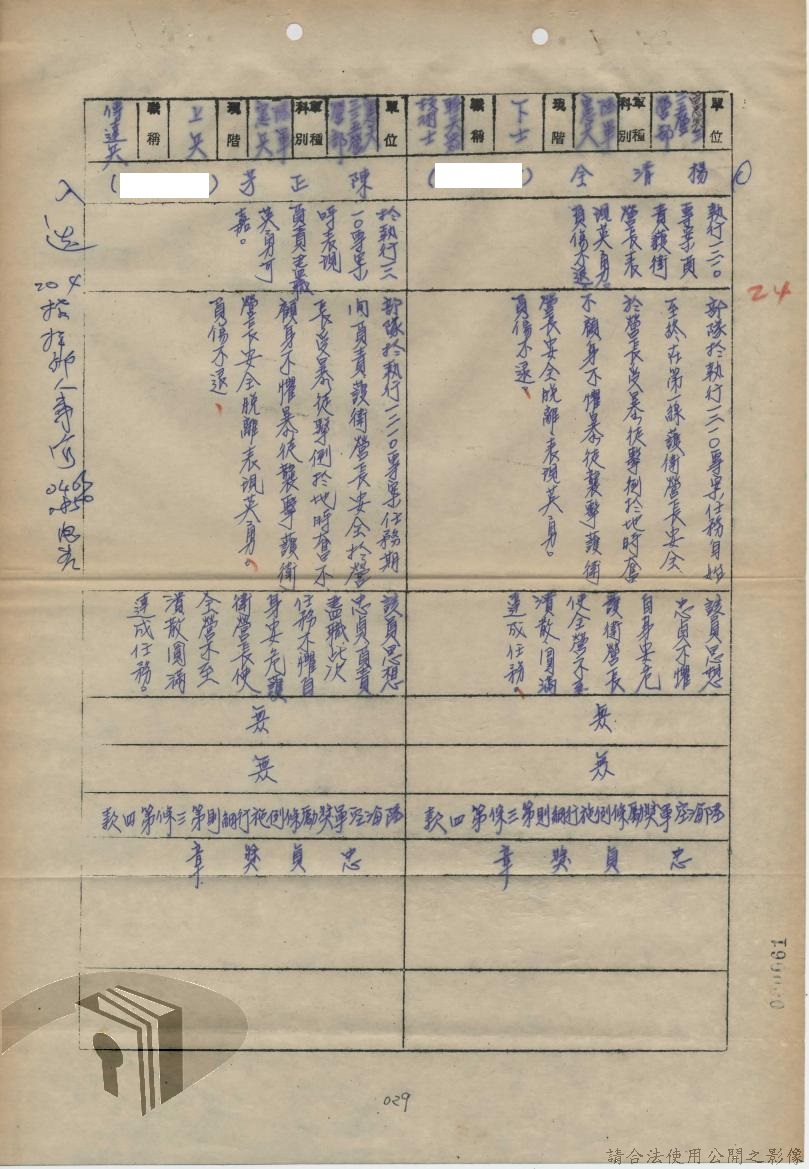 單位
憲兵
三二三營
營部
軍種
科別
陸軍
憲兵
現階
下士
職稱
楊清全
(   )
執行一二一○
專案負
責護衛
營長表
現英勇
負傷不退
部隊於執行一二一○專案任務自始
至終在第一線護衛營長安全
於營長受暴徒擊倒於地時奮
不顧身不懼暴徒襲擊護衛
營長安全脫離表現英勇。
負傷不退、
該員思想
忠貞不懼
自身安危
護衛營長
使全營不至
潰散圓滿
達成任務。
無
無
陸海空軍獎勵條例施行細則第三條第四款
忠貞獎章
單位
憲兵
營部
軍種
科別
陸軍
憲兵
現階
上兵
職稱
傳達兵
陳正芳
(   )
於執行一二
一○專案
時表現
負責盡職
英勇可
嘉。
部隊於執行一二一○專案任務期
間負責護衛營長安全於營
長受暴徒擊倒於地時奮不
顧身不懼暴徒襲擊護衛
營長安全脫離表現英勇。
負傷不退、
該員思想
忠貞負責
盡職此次
任務不懼自
身安危護
衛營長使
全營不至
潰散圓滿
達成任務。
無
無
陸海空軍獎勵條例施行細則第三條第四款
忠貞獎章
24
204
指揮部人事官
029
請合法使用公開之影像